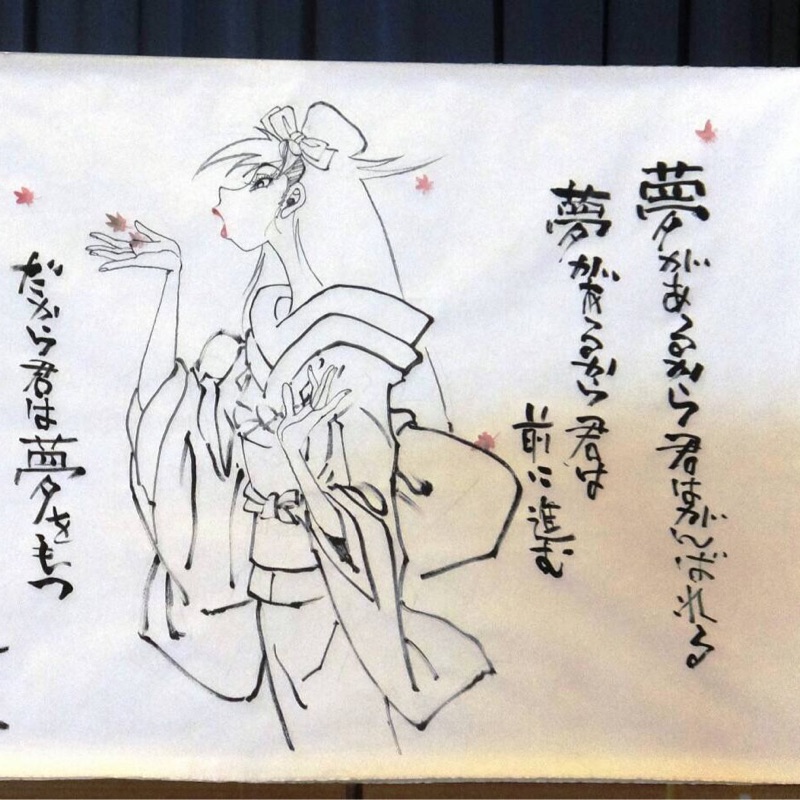 夢があるから君はがんばれる
夢があるから君は
前に進む
だから君は夢をもつ